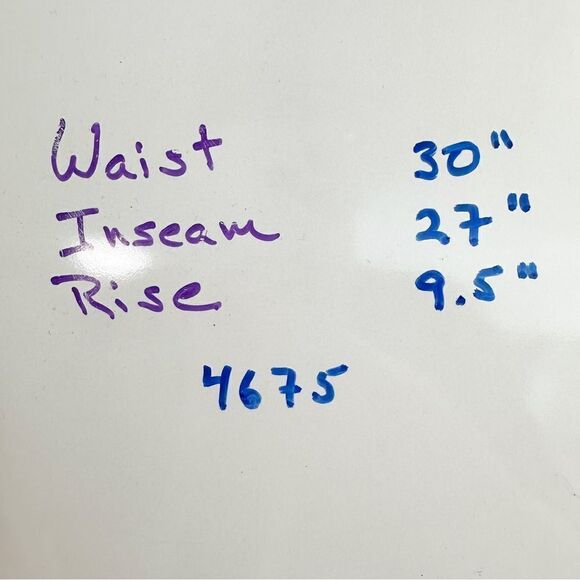 Waist 30"
Inseam 27"
Rise 9.5"
4675